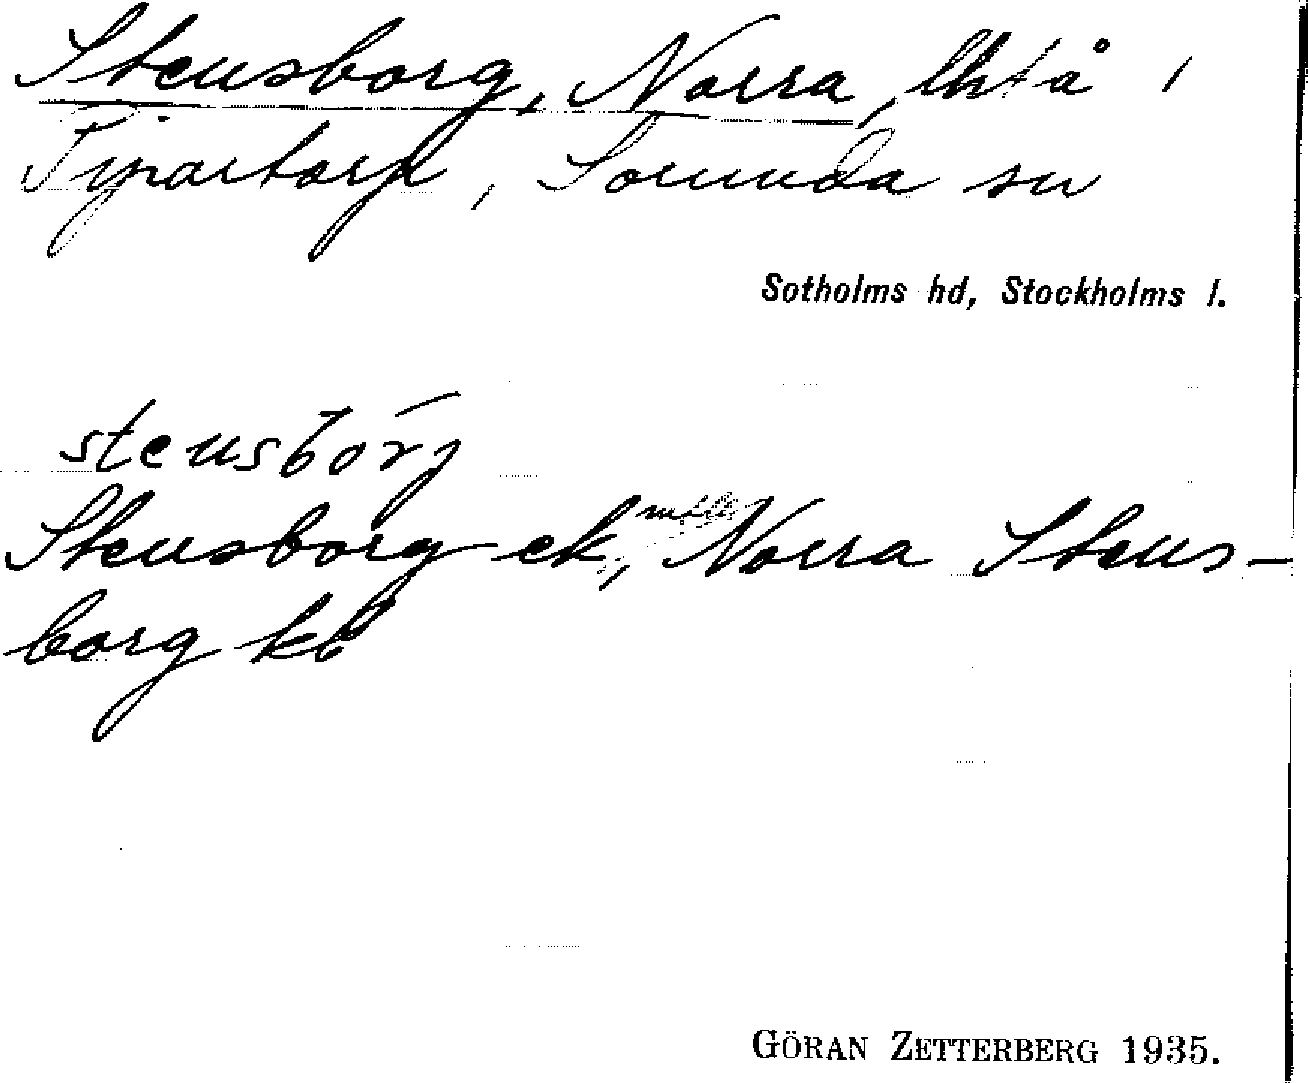 Stensborg, Norra, lht å
Pipartorp, Sorunda sn
Sotholms hd, Stockholms l.
stensbörj
Stensborg ek, Norra Stens-
borg kb
GÖRAN ZETTERBERG 1935.